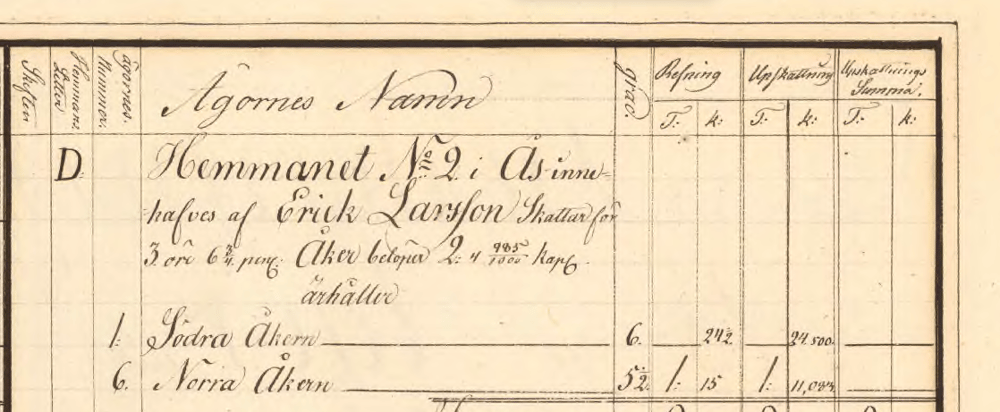 Skiften
Hemmans Litter
Ägornas Nummer.
Ägornes Namn
grad.
Refning
Upskattning
Upskattnings Summa.
T: k: T: k: T: k:
D. Hemmanet No 2 i Ås inne-
hafves af Erick Larsson Skattar för
3 öre 6 3/4 pen̄g: Åker belöper 2: 4 985/1000 kap
ärhåller
1: Södra Åkern 6. 24½ 24.500.
6. Norra Åkern 5½ 1: 15 1: